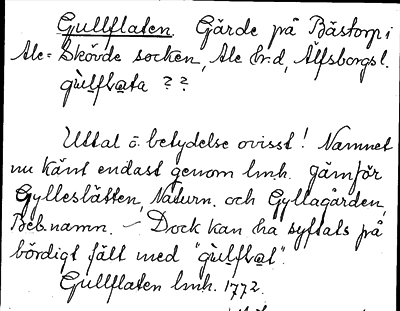 Gullflaten. Gärde på Båstorp i
Ale-Skövde socken, Ale hrd, Älfsborgs l.
gùlflata ??
Uttal o. betydelse ovisst! Namnet
nu känt endast genom lmh. Jämför
Gylleslätten, Naturn. och Gyllagården,
Beb.namn. – Dock kan ha syftats på
bördigt fält med "gùlflat".
Gullflaten lmh. 1772.